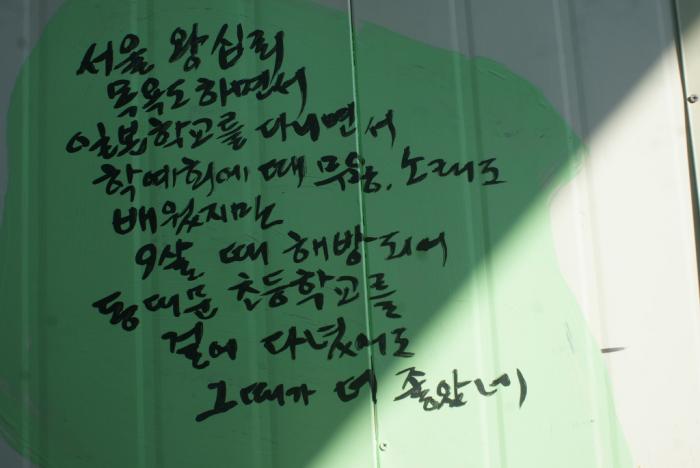 서울 왕십리
목욕도 하면서
일본학교를 다니면서
학예회에 때 무용, 노래도
배웠지만
9살 때 해방되어
동대문 초등학교를
걸어 다녔어도
그때가 더 좋았네